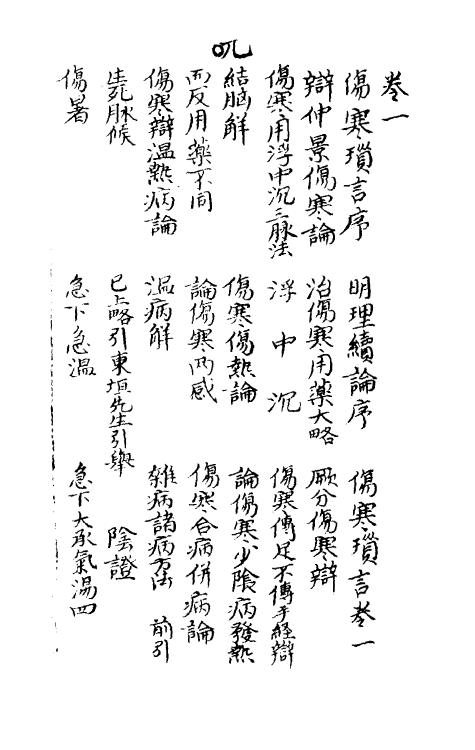 卷一
傷寒瑣言序 明理續論序 傷寒瑣言卷一
辯仲景傷寒論 治傷寒用藥大略 厥分傷寒辯
傷寒用浮中沉三脉法 浮中沉 傷寒傳足不傳手經辯
結胸解 傷寒傷熱論 論傷寒少陰病發熱
而反用藥不同 論傷寒兩感 傷寒合病併病論
傷寒辯温熱病論 温病解 雜病諸病方法 前引
生死脉候 已上略引東垣先生引舉 陰證
傷暑 急下急温 急下大承氣湯四